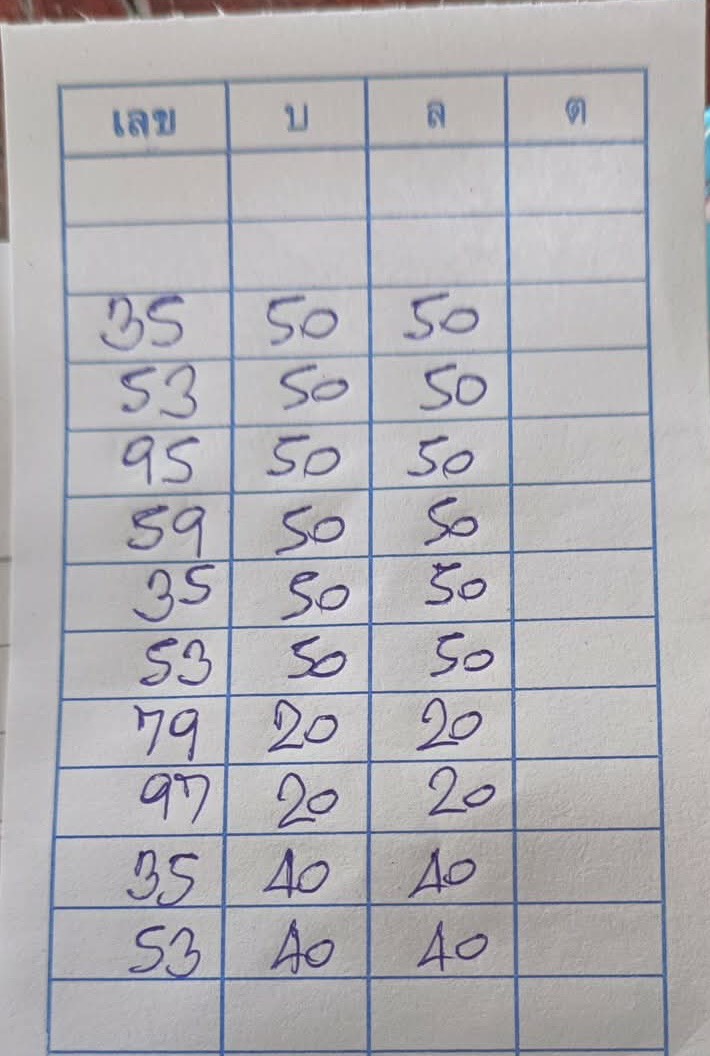 เลข บ ล ต
35 50 50
53 50 50
95 50 50
59 50 50
35 50 50
53 50 50
79 20 20
97 20 20
35 40 40
53 40 40